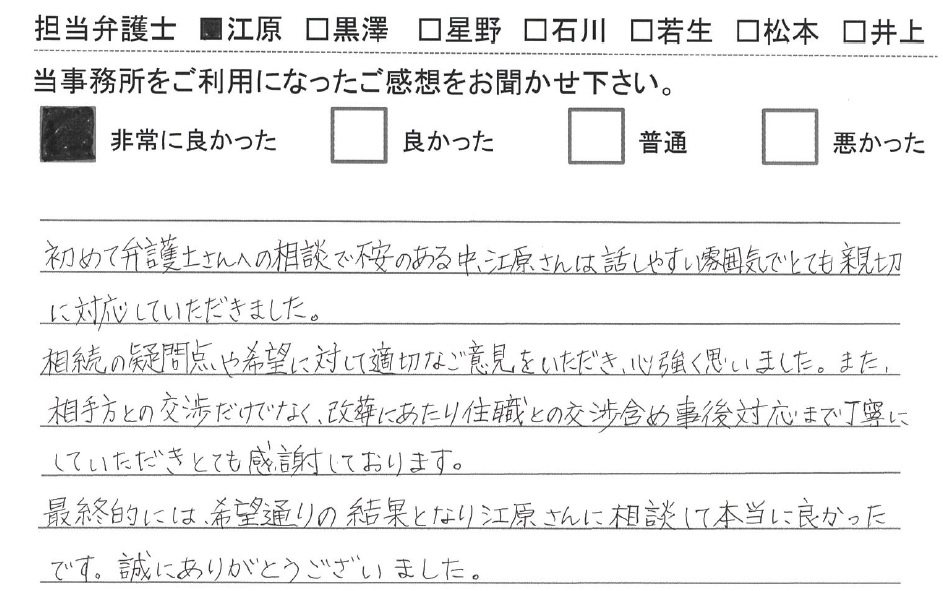 担当弁護士 ■江原 □黒澤 □星野 □石川 □若生 □松本 □井上
当事務所をご利用になったご感想をお聞かせ下さい。
■ 非常に良かった □ 良かった □ 普通 □ 悪かった
初めて弁護士さんへの相談で不安のある中、江原さんは話しやすい雰囲気でとても親切
に対応していただきました。
相続の疑問点や希望に対して適切なご意見をいただき、心強く思いました。また、
相手方との交渉だけでなく、改葬にあたり住職との交渉含め事後対応まで丁寧に
していただきとても感謝しております。
最終的には、希望通りの結果となり江原さんに相談して本当に良かった
です。誠にありがとうございました。